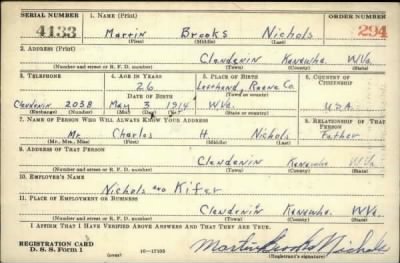 SERIAL NUMBER 1. NAME (Print) ORDER NUMBER
4133 Martin Brooks Nichols 294
(First) (Middle) (Last)
2. ADDRESS (Print)
Clendenin Kanawha W.Va.
(Number and street or R. F. D. number) (Town) (County) (State)
3. TELEPHONE 4. AGE IN YEARS 5. PLACE OF BIRTH 6. COUNTRY OF CITIZENSHIP
26 Roane Co.
DATE OF BIRTH (Town or county)
Clendenin 2038 May 3 1914 W.Va. U.S.A.
(Exchange) (Number) (Mo.) (Day) (Yr.) (State or country)
7. NAME OF PERSON WHO WILL ALWAYS KNOW YOUR ADDRESS 8. RELATIONSHIP OF THAT PERSON
Mr. Charles H. Nichols Father
(Mr., Mrs., Miss) (First) (Middle) (Last)
9. ADDRESS OF THAT PERSON
Clendenin Kanawha W.Va.
(Number and street or R. F. D. number) (Town) (County) (State)
10. EMPLOYER'S NAME
Nichols and Kifer
11. PLACE OF EMPLOYMENT OR BUSINESS
Clendenin Kanawha W.Va.
(Number and street or R. F. D. number) (Town) (County) (State)
I AFFIRM THAT I HAVE VERIFIED ABOVE ANSWERS AND THAT THEY ARE TRUE.
REGISTRATION CARD
D. S. S. Form 1 (over) Martin Brooks Nichols
(Registrant's signature)